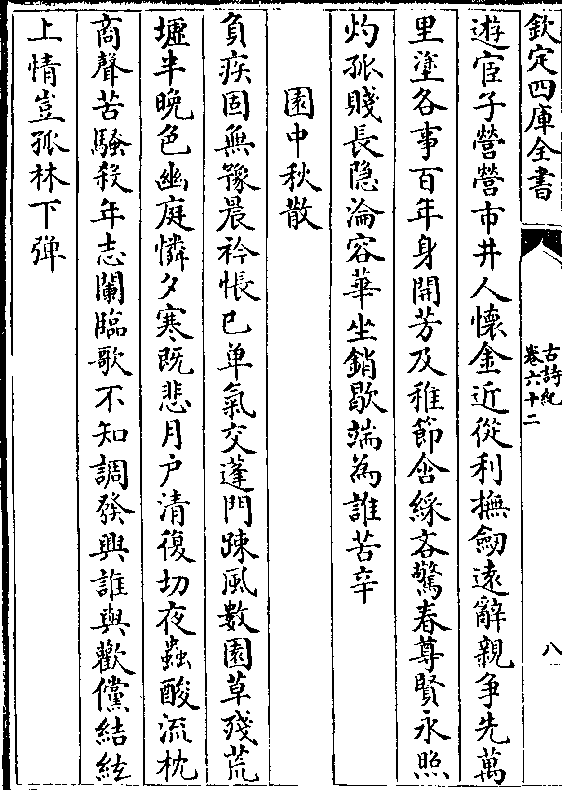 欽定四庫全書
古詩紀
卷六十二
八
遊宦子營營市井人懷金近從利撫劒遠辭親争先萬
里塗各事百年身開芳及稚節含綵吝驚春尊賢永照
灼孤賤長隐淪容華坐銷歇端為誰苦辛
園中秋散
負疾固無豫晨衿悵已单氣交蓬門疎風數園草殘荒
墟半晚色幽庭憐夕寒既悲月户清復切夜蟲酸流枕
商聲苦騷殺年志闌臨歌不知調發興誰與歡儻結絃
上情豈孤林下弹